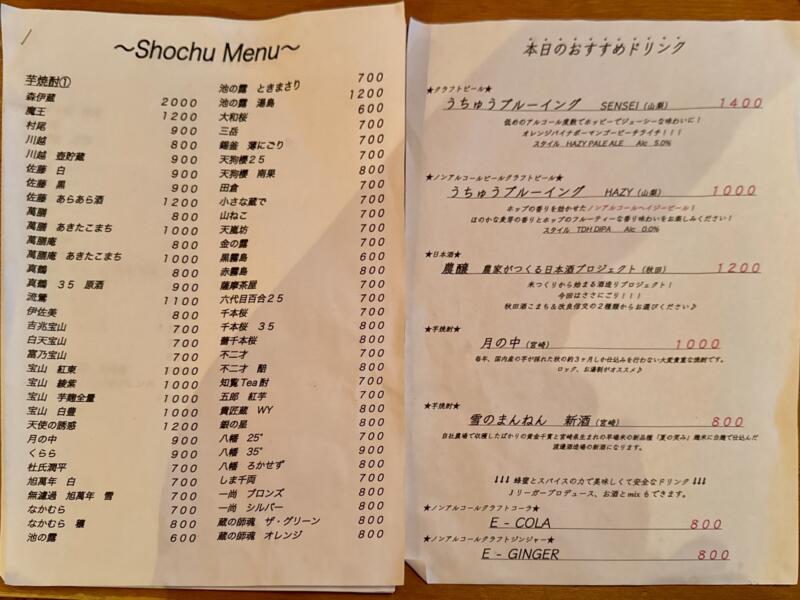 ～Shochu Menu～
芋焼酎①
森伊蔵 2000
魔王 1200
村尾 900
川越 800
川越 壺貯蔵 900
佐藤 白 900
佐藤 黒 900
佐藤 あらあら酒 1200
萬膳 800
萬膳 あきたこまち 1000
萬膳庵 800
萬膳庵 あきたこまち 1000
真鶴 800
真鶴 35 原酒 900
流鶯 1100
伊佐美 800
吉兆宝山 700
白天宝山 700
富乃宝山 700
宝山 紅東 1000
宝山 綾紫 1000
宝山 芋麹全量 1000
宝山 白豊 1000
天使の誘惑 1200
月の中 900
くらら 900
杜氏潤平 700
旭萬年 白 700
無濾過 旭萬年 雪 700
なかむら 700
なかむら 穣 800
池の露 600
池の露 ときまさり 700
池の露 湯島 1200
大和桜 600
三岳 700
錫釜 薄にごり 700
天狗櫻25 700
天狗櫻 南果 800
田倉 700
小さな蔵で 700
山ねこ 700
天嵐坊 700
金の露 700
黒霧島 600
赤霧島 800
薩摩茶屋 700
六代目百合25 700
千本桜 700
千本桜 35 800
薔千本桜 800
不二才 700
不二才 醅 800
知覧Tea酎 700
五郎 紅芋 700
貴匠蔵 WY 800
銀の星 800
八幡 25° 700
八幡 35° 900
八幡 ろかせず 800
しま千両 700
一尚 ブロンズ 800
一尚 シルバー 800
蔵の師魂 ザ・グリーン 800
蔵の師魂 オレンジ 800
本日のおすすめドリンク
★クラフトビール★
うちゅうブルーイング SENSEI（山梨） 1400
低めのアルコール度数でホッピーでジューシーな味わいに！
オレンジパイナポーマンゴーピーチライチ！！！
スタイル HAZY PALE ALE Alc 5.0%
★ノンアルコールビールクラフトビール★
うちゅうブルーイング HAZY（山梨） 1000
ホップの香りを効かせたノンアルコールヘイジービール！
ほのかな麦芽の香りとホップのフルーティーな香り味わいをお楽しみください！
スタイル TDH DIPA Alc 0.0%
★日本酒★
農醸 農家がつくる日本酒プロジェクト（秋田） 1200
米つくりから始まる酒造りプロジェクト！
今回はささにごり！！！
秋田酒こまち＆改良信交の２種類からお選びください♪
★芋焼酎★
月の中（宮崎） 1000
毎年、国内産の芋が採れた秋の約３ヶ月しか仕込みを行わない大変貴重な焼酎です。
ロック、お湯割がオススメ♪
★芋焼酎★
雪のまんねん 新酒（宮崎） 800
自社農場で収穫したばかりの黄金千貫と宮崎県生まれの早場米の新品種「夏の笑み」麹米に白麹で仕込んだ
渡邊酒造場の新酒になります。
↓↓↓ 蜂蜜とスパイスの力で美味しくて安全なドリンク ↓↓↓
Ｊリーガープロデュース、お酒とmixもできます。
★ノンアルコールクラフトコーラ★
E - COLA 800
★ノンアルコールクラフトジンジャー★
E - GINGER 800